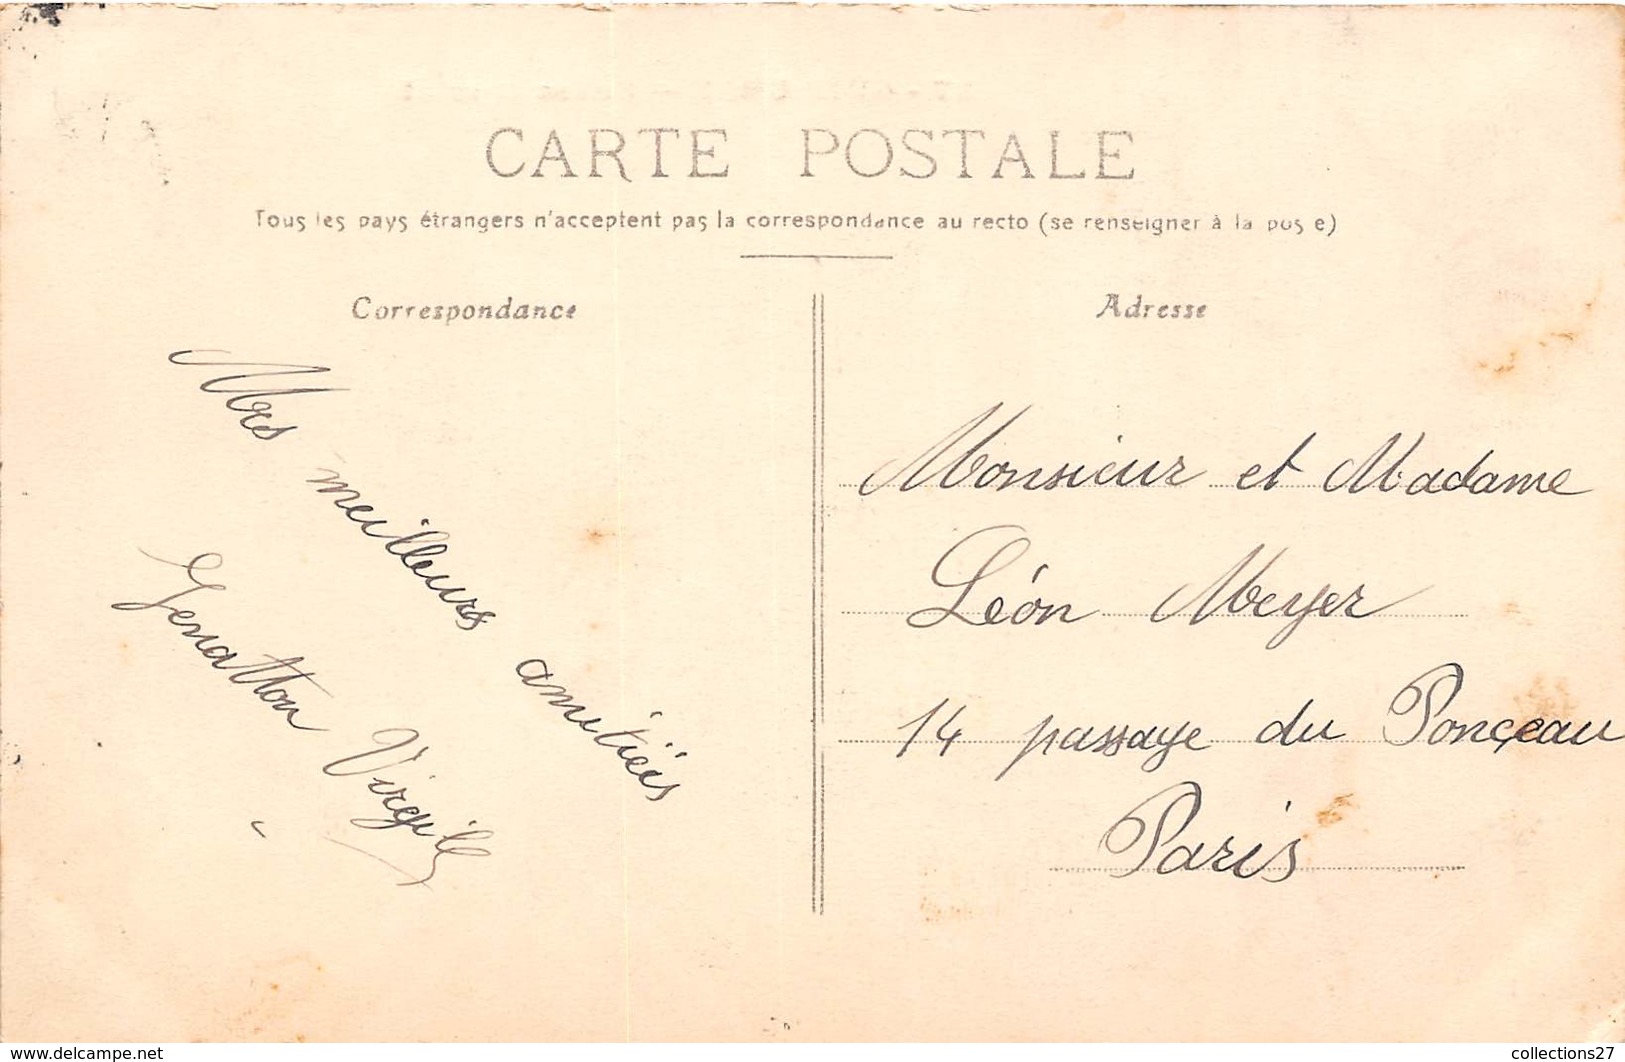 CARTE POSTALE
Tous les pays étrangers n'acceptent pas la correspondance au recto (se renseigner à la pos e)
Correspondance
Adresse
Mes meilleurs amitiéis
Genatton Virgile
Monsieur et Madame
Léón Meyer
14 passage du Ponçeau
Paris
www.delcampe.net
collections27